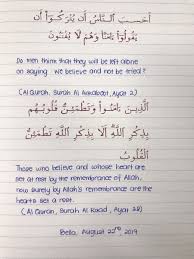 أَحَسِبَ النَّاسُ أَن يُتْرَكُوٓا۟ أَن
يَقُولُوٓا۟ ءَامَنَّا وَهُمْ لَا يُفْتَنُونَ
Do men think that they will be left alone
on saying we believe and not be tried?
(Al Quran, Surah Al Ankaboot, Ayat 2)
ٱلَّذِينَ ءَامَنُوا۟ وَتَطْمَئِنُّ قُلُوبُهُم
بِذِكْرِ اللَّهِ أَلَا بِذِكْرِ اللَّهِ تَطْمَئِنُّ
الْقُلُوبُ
Those who believe and whose heart are
set at rest by the remembrance of Allah,
now surely by Allah's remembrance are the
hearts set a rest.
(Al Quran, Surah Al Raad, Ayat 28)
Bella, August 22nd 2019